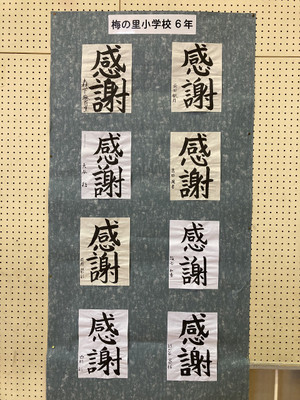 梅の里小学校 6年
感謝
感謝
感謝
感謝
感謝
感謝
感謝
感謝